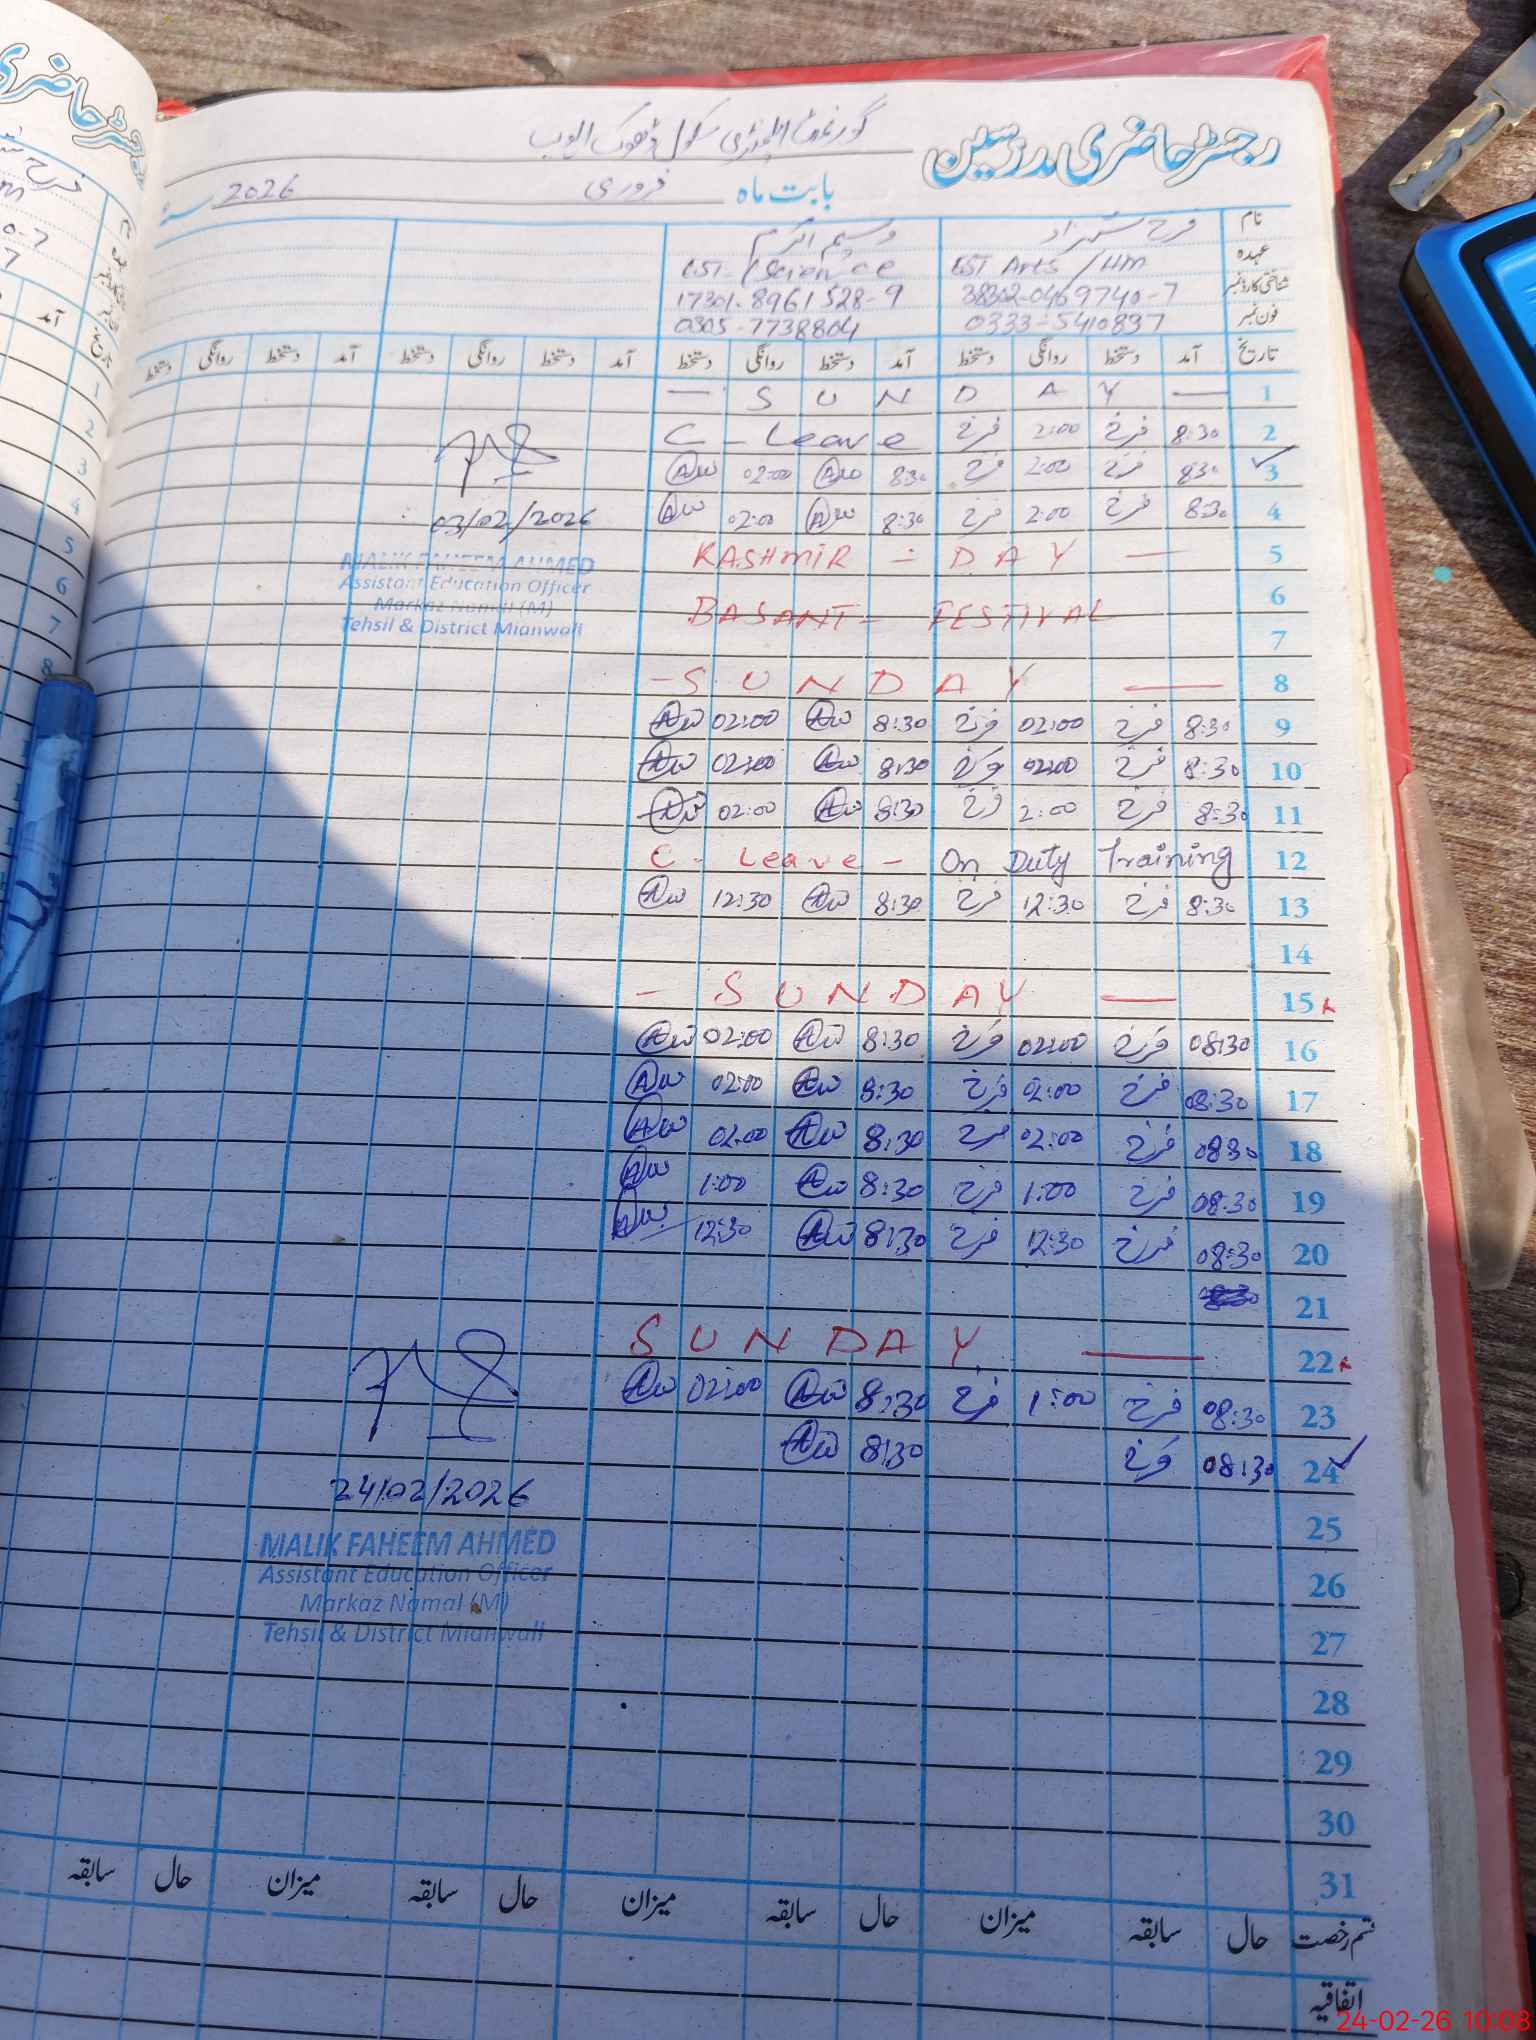 رجسٹر حاضری مدرسین گورنمنٹ ایلیمنٹری سکول ڈھوک ایوب
بابت ماہ فروری 2026
نام فرح شہزاد وسیم اکرم
عہدہ EST Arts/HM EST-/Science
شناختی کارڈ نمبر 38302-0469740-7 17301-8961528-9
فون نمبر 0333-5410897 0305-7738804
تاریخ آمد دستخط روانگی دستخط آمد دستخط روانگی دستخط آمد دستخط روانگی دستخط آمد دستخط روانگی دستخط
1 — S U N D A Y —
2 8:30 فرح 2:00 فرح C - Leave
3 830 فرح 2:00 فرح 8:30 Aw 02:00 Aw
4 8:30 فرح 2:00 فرح 8:30 Aw 02:00 Aw
03/02/2026
MALIK FAHEEM AHMED
Assistant Education Officer
Markaz Namal (M)
Tehsil & District Mianwali
5 KASHMIR - DAY —
6 BASANT - FESTIVAL
7
8 - S U N D A Y —
9 8:30 فرح 02:00 فرح 8:30 Aw 02:00 Aw
10 8:30 فرح 02:00 فرح 8:30 Aw 02:00 Aw
11 8:30 فرح 2:00 فرح 8:30 Aw 02:00 Aw
12 C - Leave - On Duty Training
13 8:30 فرح 12:30 فرح 8:30 Aw 12:30 Aw
14
15 - S U N D A Y —
16 08:30 فرح 02:00 فرح 8:30 Aw 02:00 Aw
17 08:30 فرح 02:00 فرح 8:30 Aw 02:00 Aw
18 0830 فرح 02:00 فرح 8:30 Aw 02:00 Aw
19 08:30 فرح 1:00 فرح 8:30 Aw 1:00 Aw
20 08:30 فرح 12:30 فرح 8:30 Aw 12:30 Aw
21
22 S U N D A Y —
23 08:30 فرح 1:00 فرح 8:30 Aw 02:00 Aw
24 08:30 فرح 8:30 Aw
24/02/2026
MALIK FAHEEM AHMED
Assistant Education Officer
Markaz Namal (M)
Tehsil & District Mianwali
25
26
27
28
29
30
31
قسم رخصت حال سابقہ میزان حال سابقہ میزان حال سابقہ میزان حال سابقہ
اتفاقیہ
24-02-26 10:08